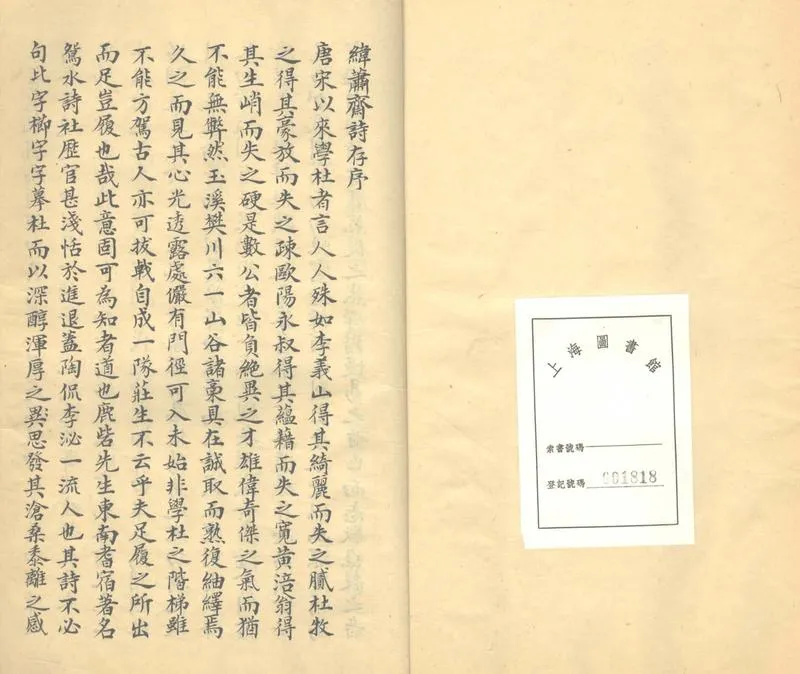 上海圖書館
索書號碼
登記號碼 901818
緯蕭齋詩存序
唐宋以來學杜者言人人殊如李義山得其綺麗而失之膩杜牧
之得其豪放而失之疎歐陽永叔得其蘊藉而失之寛黄涪翁得
其生峭而失之硬是數公者皆負絶異之才雄偉奇傑之氣而猶
不能無弊然玉溪樊川六一山谷諸稾具在誠取而熟復紬繹焉
久之而見其心光透露處儼有門徑可入未始非學杜之階梯雖
不能方駕古人亦可拔戟自成一隊莊生不云乎夫足履之所出
而足豈履也哉此意固可為知者道也鹿柴先生東南耆宿著名
鴛水詩社歴官甚淺恬於進退蓋陶侃李泌一流人也其詩不必
句比字櫛字字摹杜而以深醇渾厚之異思發其滄桑黍離之感